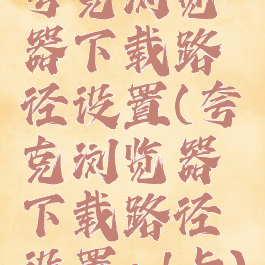 夸克浏览
器下载路
径设置(夸
克浏览器
下载路径
设置